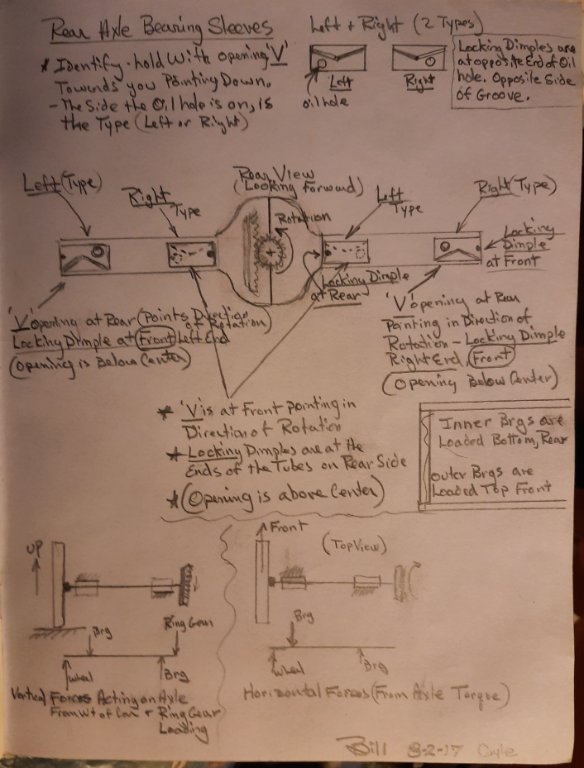 Rear Axle Bearing Sleeves
Left + Right (2 Types)
* Identify - hold With opening 'V'
Towards you Pointing Down.
- The Side the Oil hole is on, is
the Type (Left or Right)
Left
Right
oil hole
Locking Dimples are
at opposite End of Oil
hole. Opposite Side
of Groove.
Left (Type)
Right
Type
Rear View
(Looking forward)
Rotation
Left
Type
Right (Type)
Locking
Dimple
at Front
Locking Dimple
at Rear
'V' opening at Rear (Points Direction
of Rotation)
Locking Dimple at Front Left End
(Opening is Below Center)
'V' opening at Rear
Pointing in Direction of
Rotation - Locking Dimple
Right End, Front
(Opening Below Center)
* 'V' is at Front pointing in
Direction of Rotation
* Locking Dimples are at the
Ends of the Tubes on Rear Side
* (Opening is above Center)
Inner Brgs are
Loaded Bottom, Rear
outer Brgs are
Loaded Top Front
UP
Brg
Ring Gear
Wheel
Brg
Vertical Forces Acting on Axle
From Wt of Car + Ring Gear
Loading
Front
(Top View)
Brg
Wheel
Brg
Horizontal Forces (From Axle Torque)
Bill 3-2-17